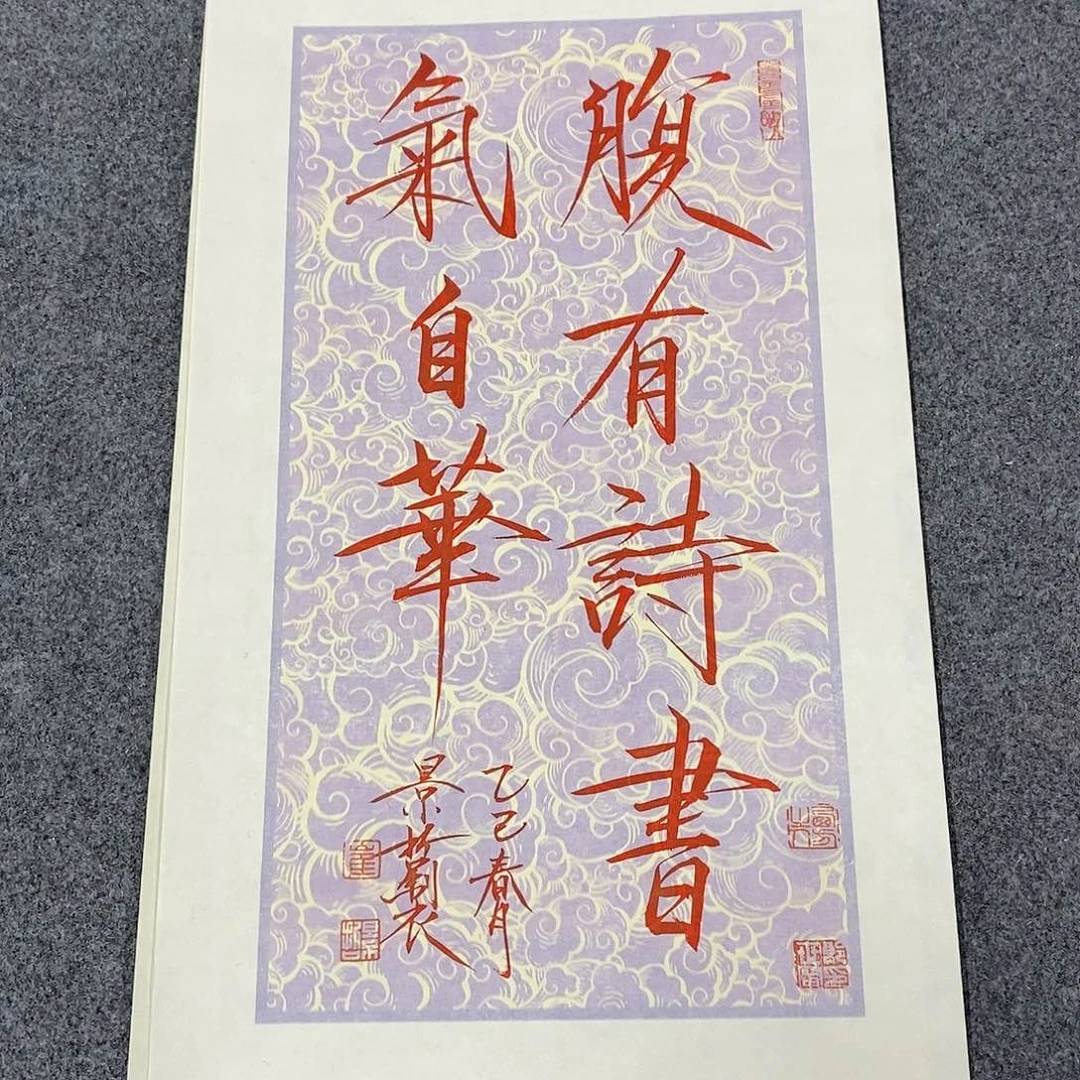 腹有詩書
氣自華
乙巳春月
景